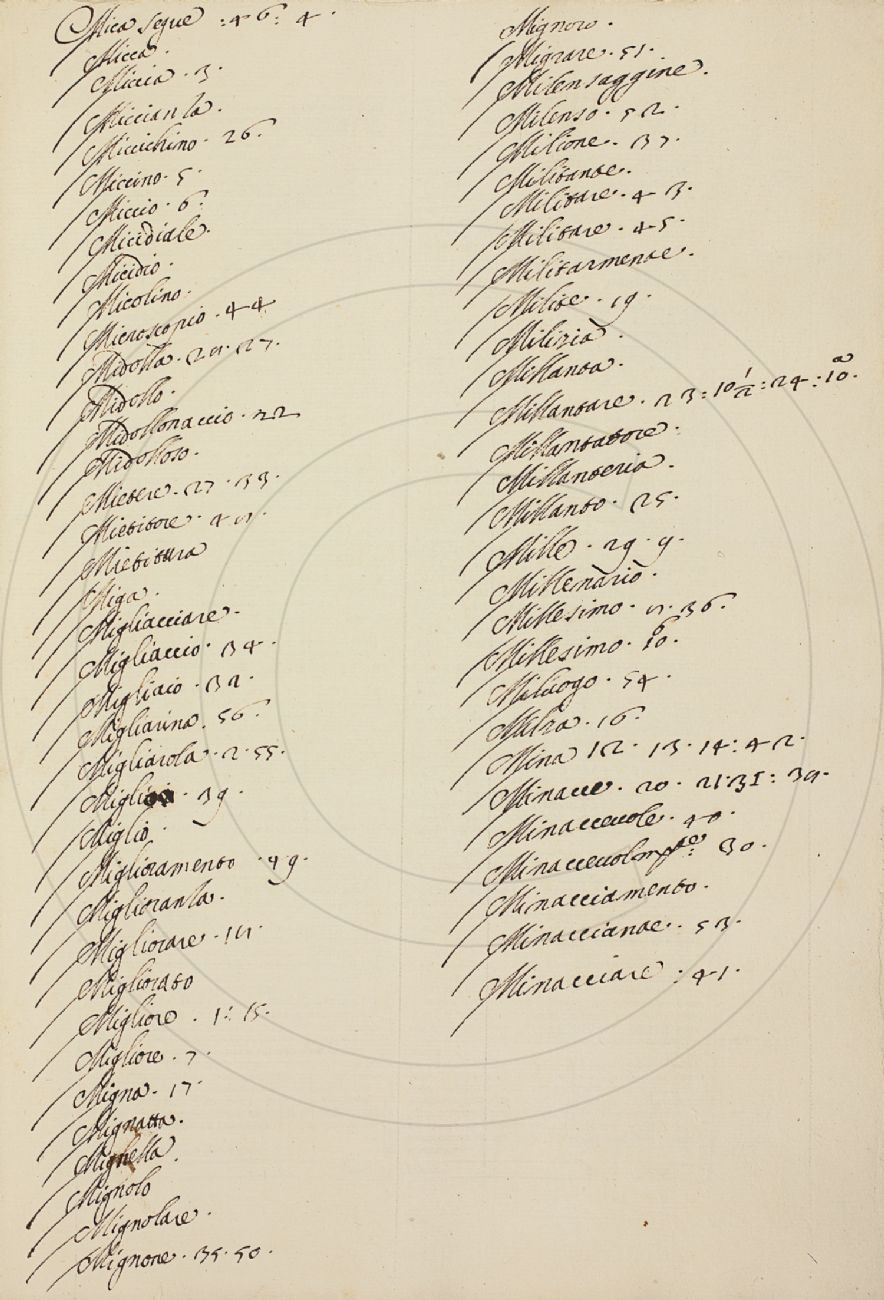 Mica segue : 46 : 4 .
Micca .
Miccia . 3 .
Miccianza .
Miccichino . 26 .
Miccino . 5 .
Miccio . 6 .
Micidiale .
Micidio .
Micolino .
Microscopio . 44
Midolla . 27 .
Midollo .
Midollonaccio . 22
Midolloso .
Mietere . 27 . 33 .
Mietitore .
Mietitura
Miga .
Migliacciare .
Migliaccio . 34 .
Migliaio . 32 .
Migliarina . 56 .
Migliarola . 2 . 55 .
39 .
Miglio .
Miglioramento . 49 .
Miglioranza .
Migliorare .
Migliorato
Migliore . 1 : 15 .
Migliore . 7 .
Migna . 17 .
Mignatta .
Mignella .
Mignolo
Mignolare .
Mignone . 35 . 50 .
Mignoro .
Migrare . 51 .
Milensaggine .
Milenso . 52 .
Milione . 37 .
Militante .
Militare . 43 .
Militare . 45 .
Militarmente .
Milite . 19 .
Milizia .
Millanta .
Millantare . 23 : 10 1/2 : 24 : 10 .
Millantatore .
Millanteria .
Millanto . 25 .
Mille . 29 . 9 .
Millenario .
Millesimo . 36 .
Millesimo .
Miluogo . 54 .
Milza . 16 .
Mina 12 . 13 . 14 : 42 .
Minacce . 20 . 21 . 31 :
Minaccevole . 40 .
30 .
Minacciamento .
Minacciante . 53 .
Minacciare : 41 .